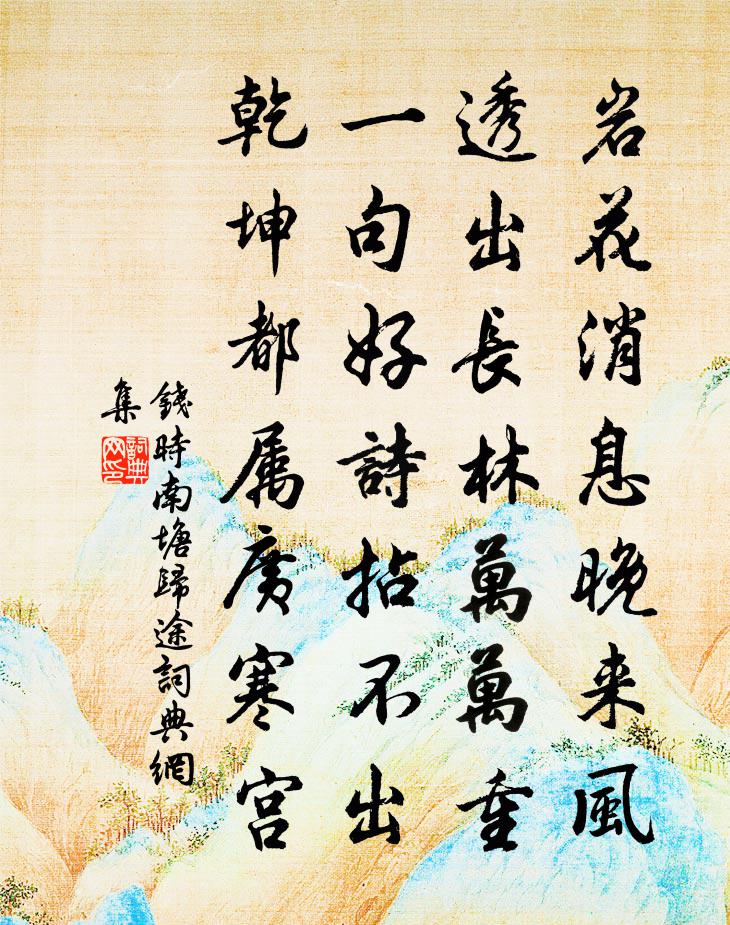 岩花消息晚来風
透出長林萬萬重
一句好詩拈不出
乾坤都属廣寒宫
錢時南塘歸途詞典網
集
詞典
网印